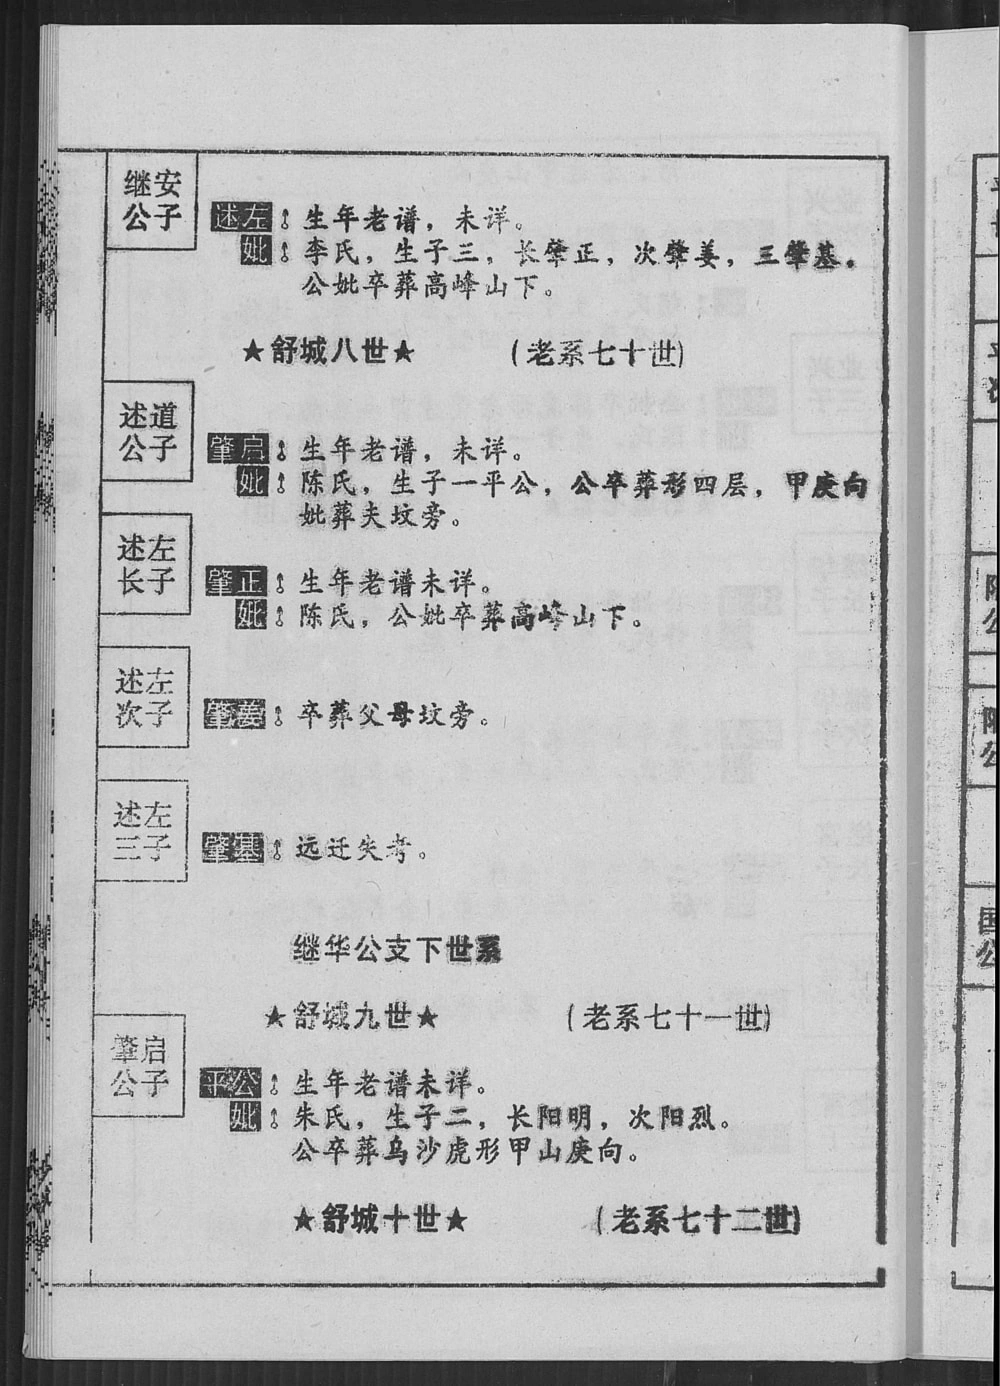 继安
公子
述左：生年老谱，未详。
妣：李氏，生子三，长肇正，次肇姜，三肇基。
公妣卒葬高峰山下。
★舒城八世★ (老系七十世)
述道
公子
肇启：生年老谱，未详。
妣：陈氏，生子一平公，公卒葬形四层，甲庚向
妣葬夫坟旁。
述左
长子
肇正：生年老谱未详。
妣：陈氏，公妣卒葬高峰山下。
述左
次子
肇姜：卒葬父母坟旁。
述左
三子
肇基：远迁失考。
继华公支下世系
★舒城九世★ (老系七十一世)
肇启
公子
平公：生年老谱未详。
妣：朱氏，生子二，长阳明，次阳烈。
公卒葬乌沙虎形甲山庚向。
★舒城十世★ (老系七十二世)
国
公